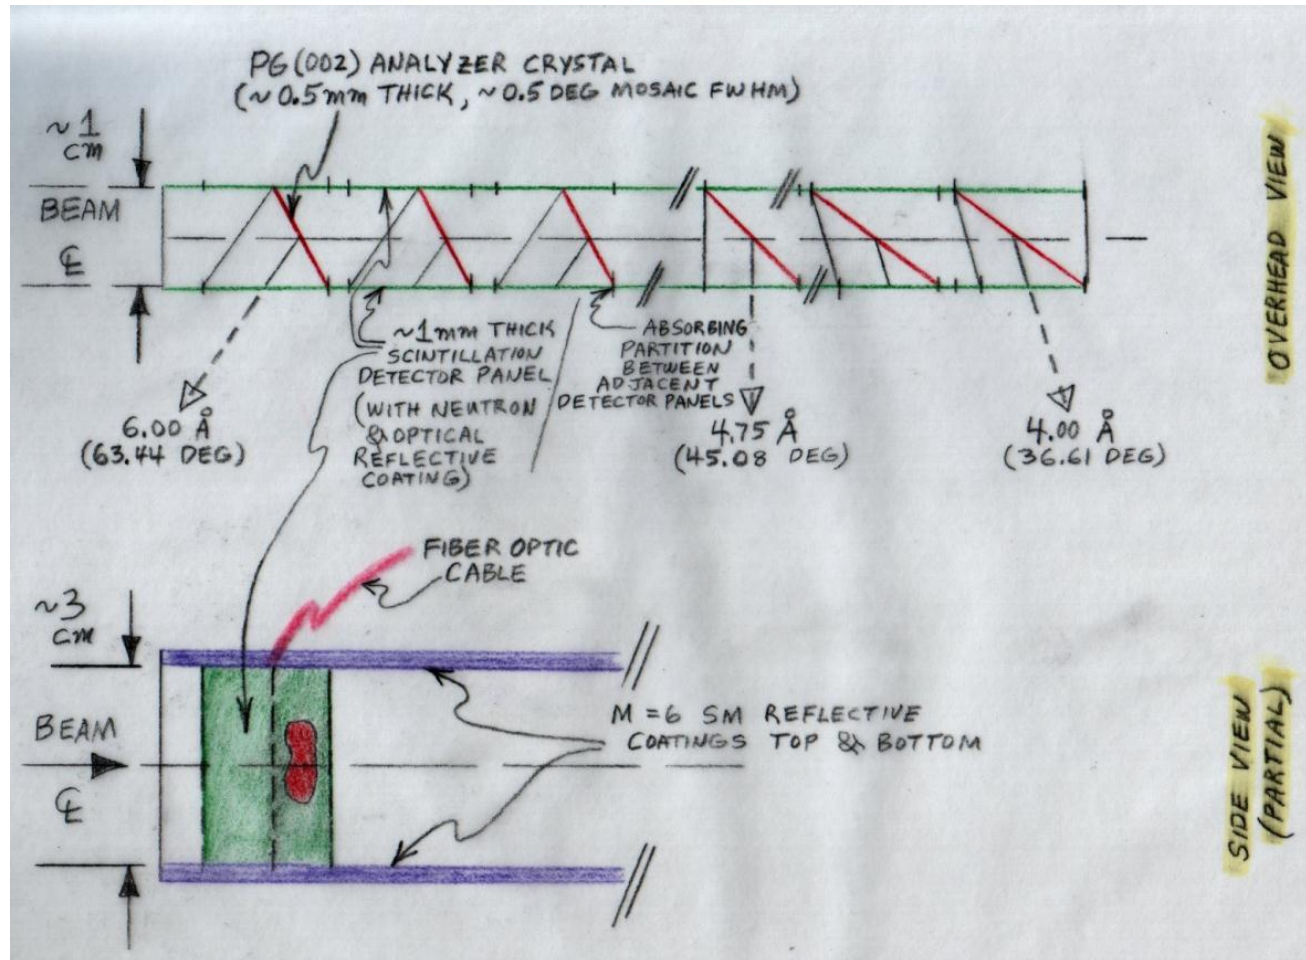 PG(002) ANALYZER CRYSTAL
(~0.5mm THICK, ~0.5 DEG MOSAIC FWHM)
~1
cm
BEAM
℄
~1mm THICK
SCINTILLATION
DETECTOR PANEL
(WITH NEUTRON
& OPTICAL
REFLECTIVE
COATING)
ABSORBING
PARTITION
BETWEEN
ADJACENT
DETECTOR PANELS
6.00 Å
(63.44 DEG)
4.75 Å
(45.08 DEG)
4.00 Å
(36.61 DEG)
OVERHEAD VIEW
FIBER OPTIC
CABLE
~3
cm
BEAM
℄
M=6 SM REFLECTIVE
COATINGS TOP & BOTTOM
SIDE VIEW
(PARTIAL)